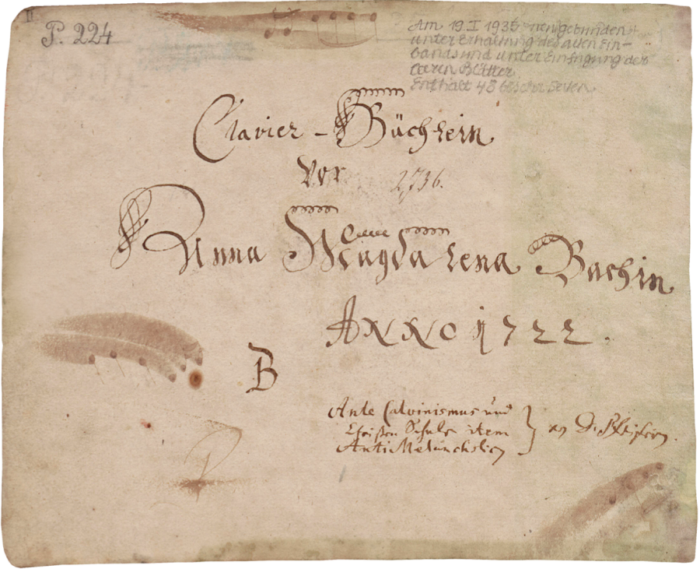 P. 224
Am 19.I.1936 neu gebunden
unter Erhaltung des alten Ein-
bands und unter Einfügung der
leeren Blätter.
Enthält 48 beschr. Seiten
Clavier-Büchlein
vor
Anna Magdalena Bachin
ANNO 1722.
B
Ante Calvinismus und
Christen Schule item
AntiMelancholicy
von D. Pfeifern.